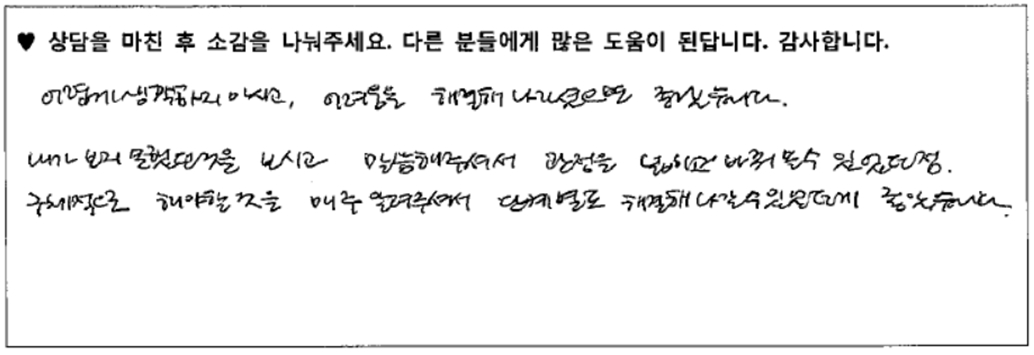 ♥ 상담을 마친 후 소감을 나눠주세요. 다른 분들에게 많은 도움이 된답니다. 감사합니다.
어렵게 생각하지 마시고, 어려움을 해결해 나가셨으면 좋겠습니다.
내가 보지 못했던것을 보시고 말씀해주셔서 관점을 넓히고 바꿔 볼수 있었던점.
구체적으로 해야할것을 매주 알려주셔서 단계별로 해결해나갈수있었던게 좋았습니다.